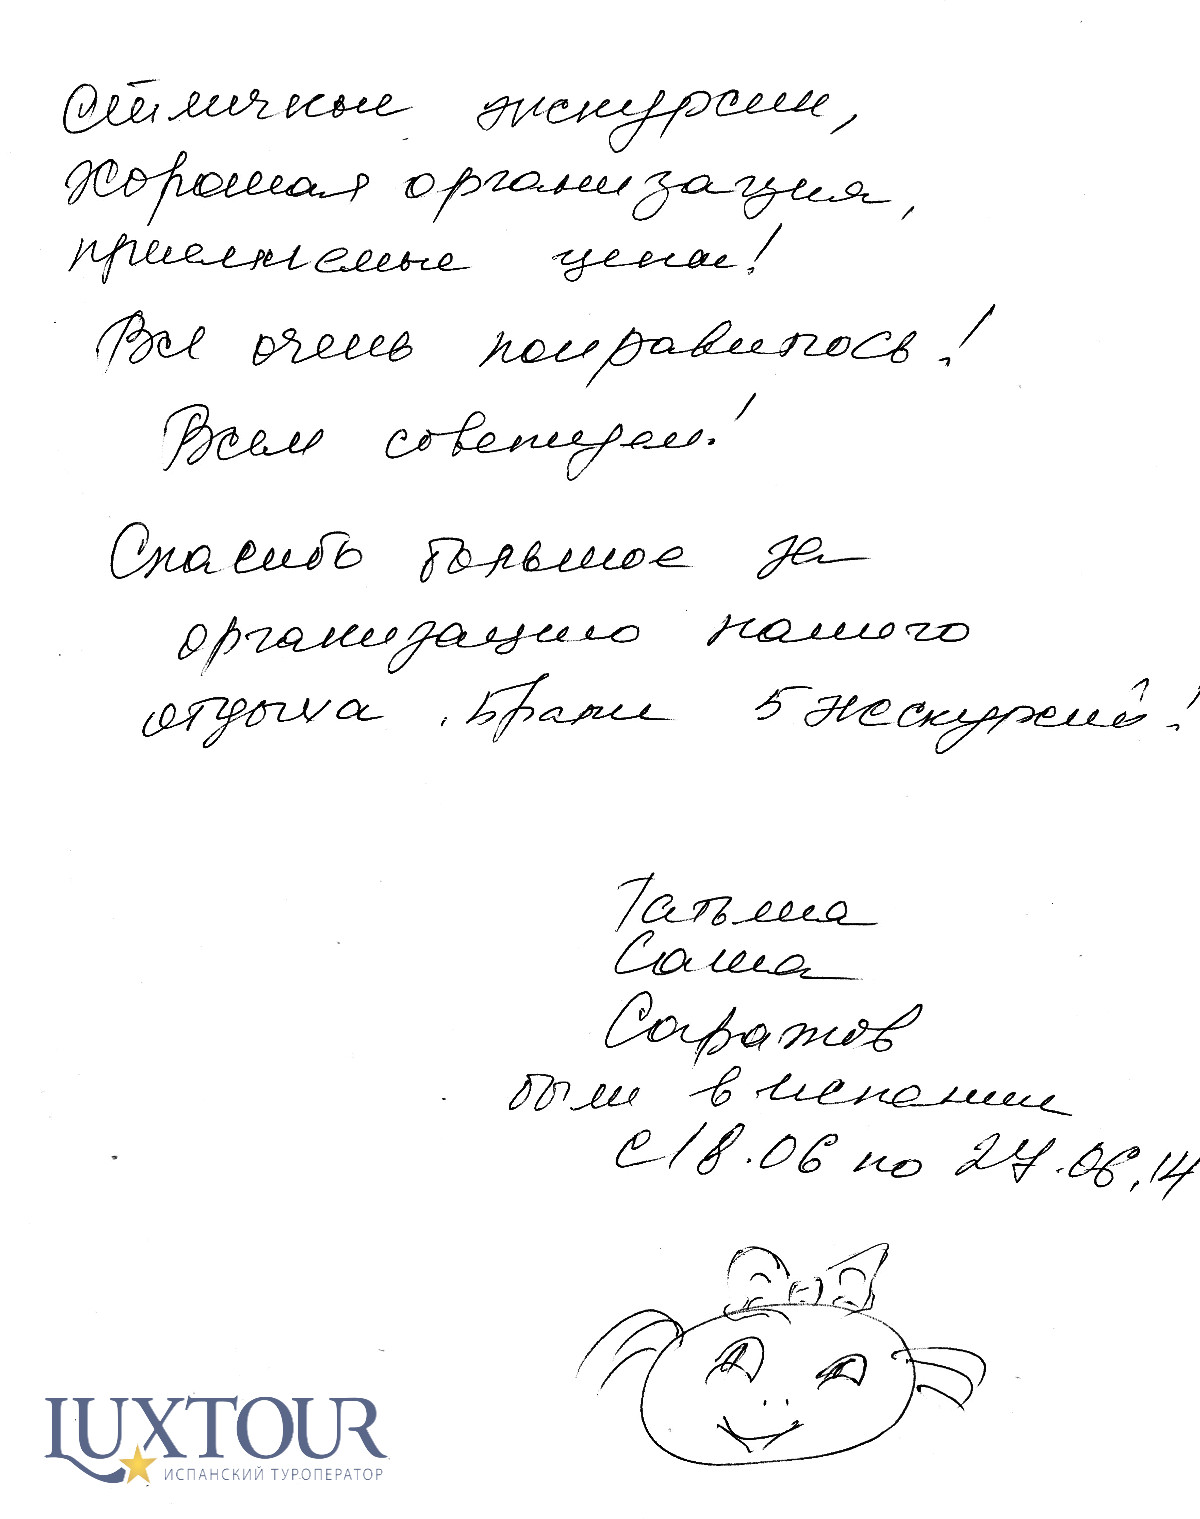 Отличные экскурсии,
хорошая организация,
приемлемые цены!
Все очень понравилось!
Всем советуем!
Спасибо большое за
организацию нашего
отдыха. Брали 5 экскурсий!
Татьяна
Саша
Саратов
были в испании
с 18.06 по 27.06.14
LUXTOUR
ИСПАНСКИЙ ТУРОПЕРАТОР